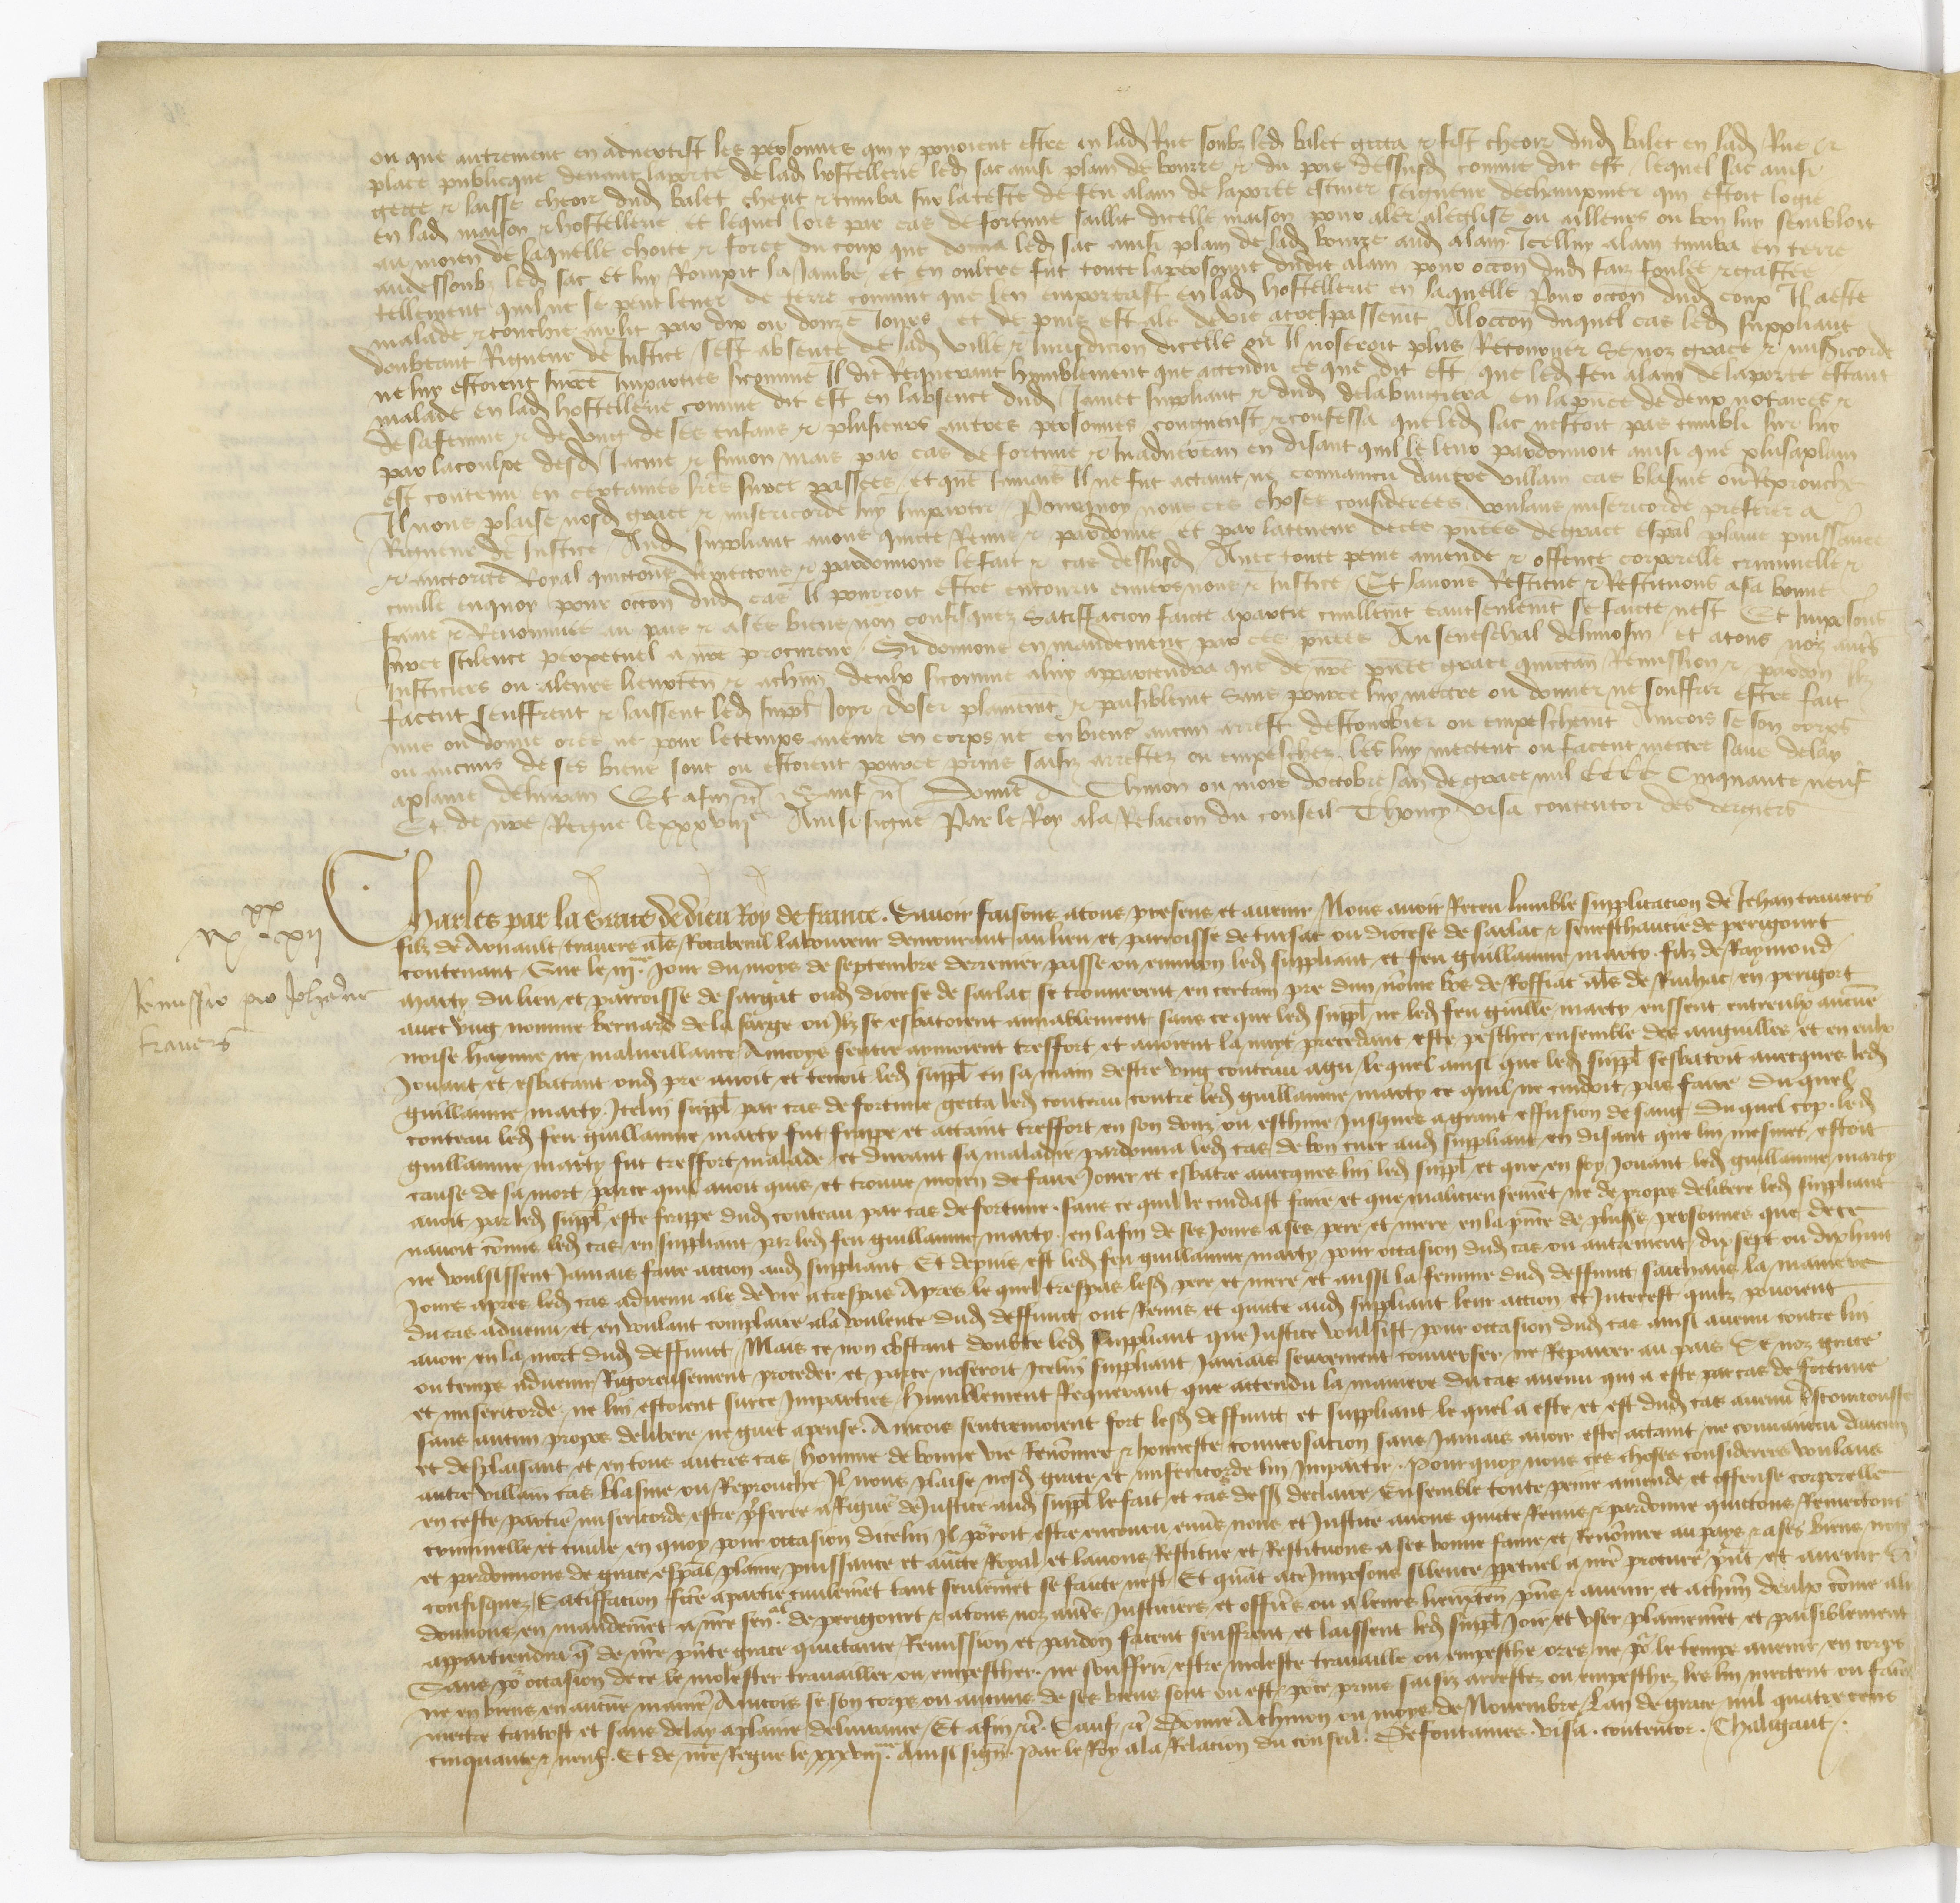 ou que autrement en advertist les personnes qui y povoient estre en lad Rue soubz led balet gecta et fist cheoir dud balet en lad Rue et
place publicque devant laporte de lad hostellerie led sac ainsi plain de bourre et du pois dessusd comme dit est lequel sac ainsi
gecte et laisse cheoir dud balet cheut et tumba sur lateste de feu alain de laporte escuier seigneur dechampnier qui estoit logie
en lad maison et hostellerie et lequel lors par cas de fortune saillit dicelle maison pour aler aleglise ou ailleurs ou bon luy sembloit
au moien de laquelle choite et force du coup que donna led sac ainsi plain de lad bourre aud alain Icelluy alain tumba en terre
audessoubz led sac et luy Rompit la Jambe et en oultre fut toute lapersonne dudit alain pour occon dud faiz foulee et cassee
tellement quil ne se peut lever de terre comment que len emportast en lad hostellerie en laquelle Pour occon dud coup Il a este
malade et couchie aulit par dix ou douze Jours et de puis est ale devie atrespassement Aloccon duquel cas led suppliant
doubtant Rigueur de Justice sest absente de lad ville et Juridicion dicelle ou Il noseroit plus Retourner Se noz grace et misericorde
ne luy estoient surce Imparties sicomme Il dit Requerant humblement que attendu ce que dit est que led feu alain delaporte estant
malade en lad hostellerie comme dit est en labsence dud Jamet suppliant et dud en lapnce de deux notaires et
de safemme et de ung de ses enfans et plusieurs autres personnes congneust et confessa que led sac nestoit pas tumbe sur luy
par lacoulpe desd Jamet et simon mais par cas de fortune et Inadvertan en disant quil le leur pardonnoit ainsi que plusaplain
est contenu en certaines lres surce passees et que Jamais Il ne fut actaint ne convaincu daucun villain cas blasme ou Reprouche
Il nous plaise nosd grace et misericorde luy Impartir Pourquoy nous ces choses considerees voulans misericorde preferer a
Rigueur de Justice Aud suppliant avons quicte Remis et pardonne et par lateneur deces pntes degrace espal plaine puissance
et auctorite Royal quictons Remectons et pardonnons lefait et cas dessusd Avec toute peine amende et offence corporelle criminelle et
civille enquoy pour occon dud cas Il pourroit estre encouru envers nous et Justice Et lavons Restitue et Restituons asa bonne
fame et Renommee au pais et ases biens non confisquez Satiffacion faicte apartie civillemt tantseulemt se faicte nest Et Imposons
surce scilence perpetuel a nre procureur Si donnons en mandement par ces pntes Au seneschal delimosin et atous noz autrs
Justiciers ou aleurs lieuxten et achun deulx sicomme aluy appartendra que de nre pnte grace quictan Remission et pardon Ilz
facent seuffrent et laissent led suppl Joyr duser plainemt et paisiblemt Sans pource luy mectre ou donner ne souffrir estre fait
mis ou donne ores ne pour letemps avenir en corps ne en biens aucun arrest destourbier ou empeschemt Aincois se son corps
ou aucuns de ses biens sont ou estoient pource prins saisiz arrestez ou empeschez les luy mectent ou facent mectre sans delay
aplaine delivran Et afin etc Sauf etc Donne A Chinon ou mois doctobre lan de grace mil CCCC Cinquante neuf
Et de nre Regne lexxxviii Ainsi signe Par le Roy ala Relacion du conseil Thoucy Visa contentor
Charles par la Grace de dieu Roy de france . Savoir faisons atous presens et avenir Nous avoir Receu lumble supplicacion de Jehan travers
filz de Arnaut travers als Rocabenil laboureur demourant aulieu et parroisse de tursac ou diocese de sarlat et seneschaucie de perigourt
contenant Que le iiime Jour du moys de septembre derrenier passe ou environ led suppliant et feu guillaume marty filz de Raymond
marty du lieu et parroisse de sargat oud diocese de sarlat se trouverent en certain pre dun nomme bos de Roffiac als de Rulhac en perigort
avec ung nomme bernard de la farge ou Ilz se esbatoient amiablement sans ce que led suppl ne led feu guille marty eussent entreulx aucune
noise hayne ne malveillance Aincoys sentre aymoient tresfort et avoient la nuyt precedant este pescher ensemble des anguilles et en eulx
Jouant et esbatant oud pre avoit et tenoit led suppl en sa main destre ung couteau agu lequel ainsi que led suppl sesbatoit avecques led
guillaume marty Icelui suppl par cas de fortune gecta led couteau contre led guillaume marty ce quil ne cuidoit pas faire Du quel
couteau led feu guillaume marty fut frappe et actaint tresfort en son doux ou eschine Jusques agrant effusion de sang Du quel cop led
guillaume marty fut tresfort malade et durant sa maladie pardonna led cas de bon cuer aud suppliant en disant que lui mesmes estoit
cause de sa mort parce quil avoit quis et trouve moien de faire Jouer et esbatre avecques lui led suppl et que en soy Jouant led guillaume marty
avoit par led suppl este frappe dud couteau par cas de fortune sans ce quil le cuidast faire et que malicieusemet ne de propos delibere led suppliant
navoit comis led cas en suppliant par led feu guillaume marty en lafin de ses Jours ases pere et mere en lapnce de plusrs personnes que de ce
ne voulsissent Jamais faire accion aud suppliant Et depuis est led feu guillaume marty pour occasion dud cas ou autrement dix sept ou dixhuit
Jours apres led cas advenu ale de vie atrespas Apres le quel trespas lesd pere et mere et aussi la femme dud deffunct saichans la maniere
du cas advenu et en voulant complaire ala voulente dud deffunct ont Remis et quicte aud suppliant leur accion et Interest quilz povoient
avoir en la mort dud deffunct Mais ce non obstant doubte led suppliant que Justice voulsist pour occasion dud cas ainsi avenu contre lui
ou temps advenir Rigoreusement proceder et parce noseroit Icelui suppliant Jamais seurement converser ne Repairer au pais Se noz grace
et misericorde ne lui estoient surce Imparties humblement Requerant que attendu la maniere du cas avenu qui a este par cas de fortune
sans aucun propos delibere ne guet apense Aincois sentremoient fort lesd deffunct et suppliant le quel a este et est dud cas avenu
et desplaisant et en tous autres cas homme de bonne vie Renommee et honneste conversacion sans Jamais avoir este actaint ne convaincu daucun
autre villain cas blasme ou Reprouche Il nous plaise nosd grace et misericorde lui Impartir Pourquoy nous ces choses considerees voulans
en ceste partie misericorde estre preferee a Rigueur de Justice aud suppl le fait et cas dessusd declaire Ensemble toute peine amende et offense corporelle
criminelle et civile en quoy pour occasion dicelui Il porroit estre encouru envers nous et Justice avons quicte Remis et pardonne quictons Remectons
et pardonnons de grace espal plaine puissance et aucte Royal et lavons Restitue et Restituons ases bonne fame et Renommee au pays et ases biens non
confisquez Satiffacion fcte apartie civilemet tant seulemet se faicte nest Et quat ace Imposons silence ppetuel a nre procureur pnt et avenir Si
donnons en mandemet a nre senal de perigourt et atous noz autrs Justiciers et officrs ou a leurs lieuxten pns et avenir et achun deulx come alui
appartiendra que de nre pnte grace quictance Remission et pardon facent seuffrent et laissent led suppl Joir et user plainemet et paisiblement
Sans por occasion de ce le molester travailler ou empescher ne souffrir estre moleste travaille ou empesche ores ne por le temps avenir en corps
ne en biens en aucune maniere Aincois se son corps ou aucuns de ses biens sont ou estoient pource prins saisiz arrestez ou empeschez les lui mectent ou facent
mectre tantost et sans delay aplaine delivrance Et afin etc Sauf etc Donne Achinon ou moys de Novembre Lan de grace mil quatre cens
cinquante et neuf Et de nre Regne le xxxviiime Ainsi signe Par le Roy ala Relacion du conseil Defontaines visa contentor Chaligaut
ixxx xii
Remissio pro Johanne
travers